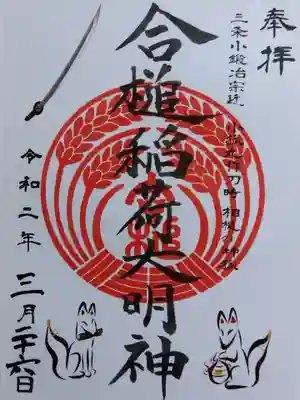 奉拝
三条小鍛冶宗近
小狐丸作刀時相槌の神狐
合槌稲荷大明神
令和二年
三月二十六日